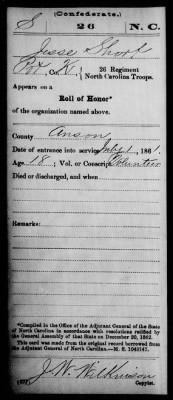 (Confederate.)
S 26 N. C.
Jesse Short
Pvt, Co. K, 26 Regiment
North Carolina Troops.
Appears on a
Roll of Honor*
of the organization named above.
County Anson
Date of entrance into service July 1, 1861.
Age 18; Vol. or Conscript Volunteer
Died or discharged, and when
Remarks:
*Compiled in the Office of the Adjutant General of the State
of North Carolina in accordance with resolutions ratified by
the General Assembly of that State on December 20, 1862.
This card was made from the original record borrowed from
the Adjutant General of North Carolina.—R. & P.
J. W. Wilkinson
Copyist.